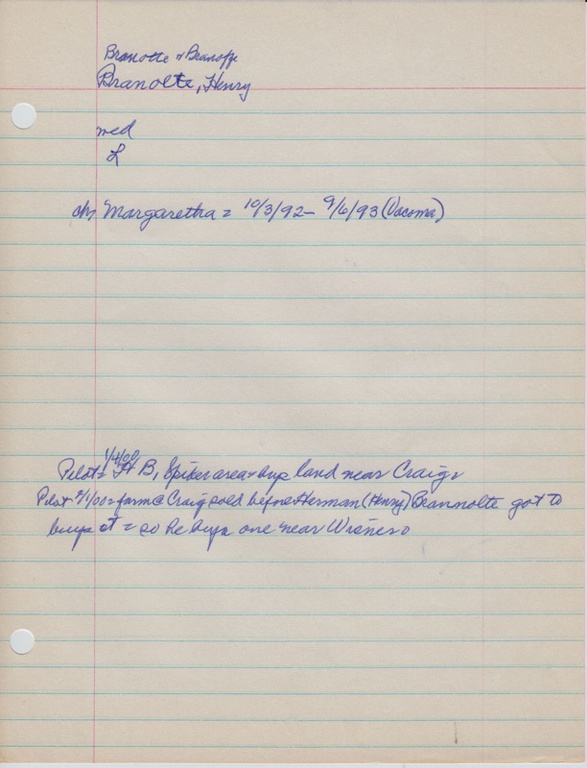 Branotte & Branoffe
Branolte, Henry
med
L
ch, Margaretha = 10/3/92 – 9/6/93 (Vacoma)
1/4/00
Pilot = H B, Spiker area buys land near Craig
Pilot 2/1/00 = farm @ Craig sold before Herman (Henry) Brannolte got to
buys it = so he buys one near Wisner